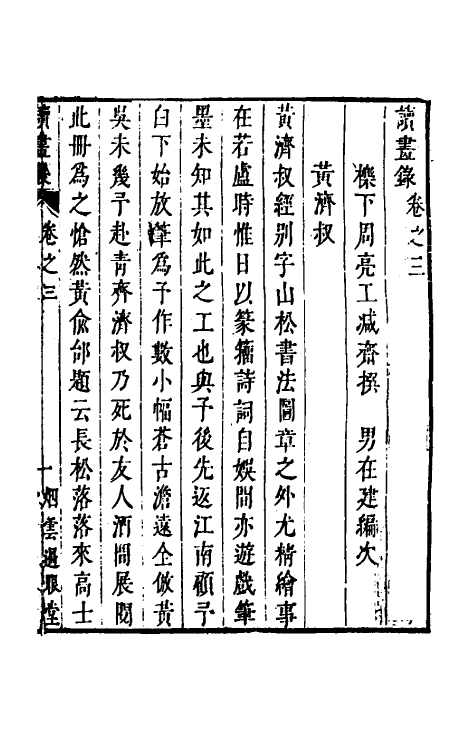 讀畫錄卷之三
櫟下周亮工減齋撰　男在建編次
黃濟叔
黃濟叔經别字山松書法圖章之外尤精繪事
在若盧時惟日以篆籀詩詞自娛間亦遊戯筆
墨未知其如此之工也與予後先返江南顧予
白下始放筆爲予作數小幅蒼古澹遠全倣黃
吳未幾予赴青齊濟叔乃死於友人酒間展閱
此冊爲之愴然黃俞邰題云長松落落來高士
讀畫錄　卷之三　一　烟雲過眼堂